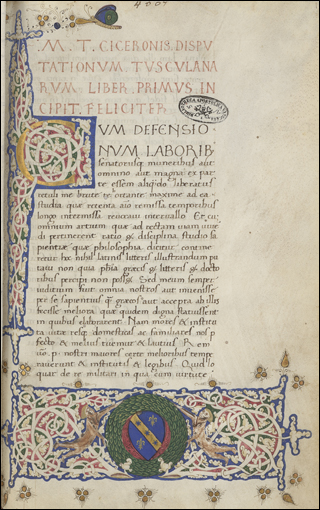 .M. T. CICERONIS. DISPU
TATIONUM. TUSCULANA
RUM LIBER. PRIMUS. IN
CIPIT. FELICITER.
CUM DEFENSIO
NUM LABORIB;
senatoriisq; muneribus aut
omnino aut magna ex par
te essem liberatus
retuli me brute te hortante maxime ad ea
studia quae retenta remissa temporibus
longo intermissa revocavi intervallo. Et cu
omnium artium quae ad rectam
di pertinerent ratio & disciplina studio sa
pientiae quae philosophia dicitur contine
retur hoc mihi latinis litteris illustrandum pu
tavi non quia phia graecis & litteris & docto
ribus percipi non posset. Sed meum semper
iudicium fuit omnia nostros aut invenisse
per se sapientius q̃ graecos aut accepta ab illis
fecisse meliora quae quidem digna statuissent
in quibus elaborarent. Nam mores & institu
ta vitae resq domesticas ac familiares nos p
fecto & melius tuemur & lautius. Rem
vo. p. nostri maiores certe melioribus tempe
raverunt & institutis & legibus. Quid lo
quar de re militari in qua cum virtute